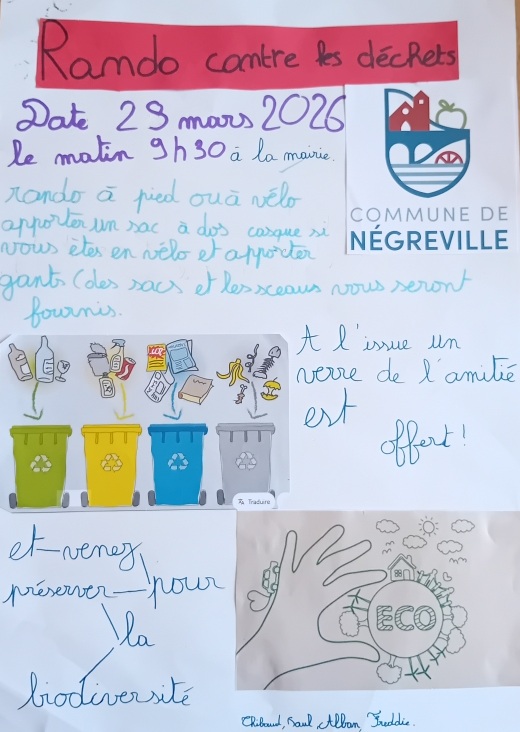 Rando contre les déchets
Date 29 mars 2026
le matin 9h30 à la mairie.
COMMUNE DE
NÉGREVILLE
rando à pied ou à vélo
apporter un sac à dos casque si
vous êtes en vélo et apporter
gants (des sacs et les sceaux vous seront
fournis.
Traduire
A l'issue un
verre de l'amitié
est
offert!
et venez
préserver pour
la
biodiversité
ECO
Thibaud, Saul, Alban, Freddie.